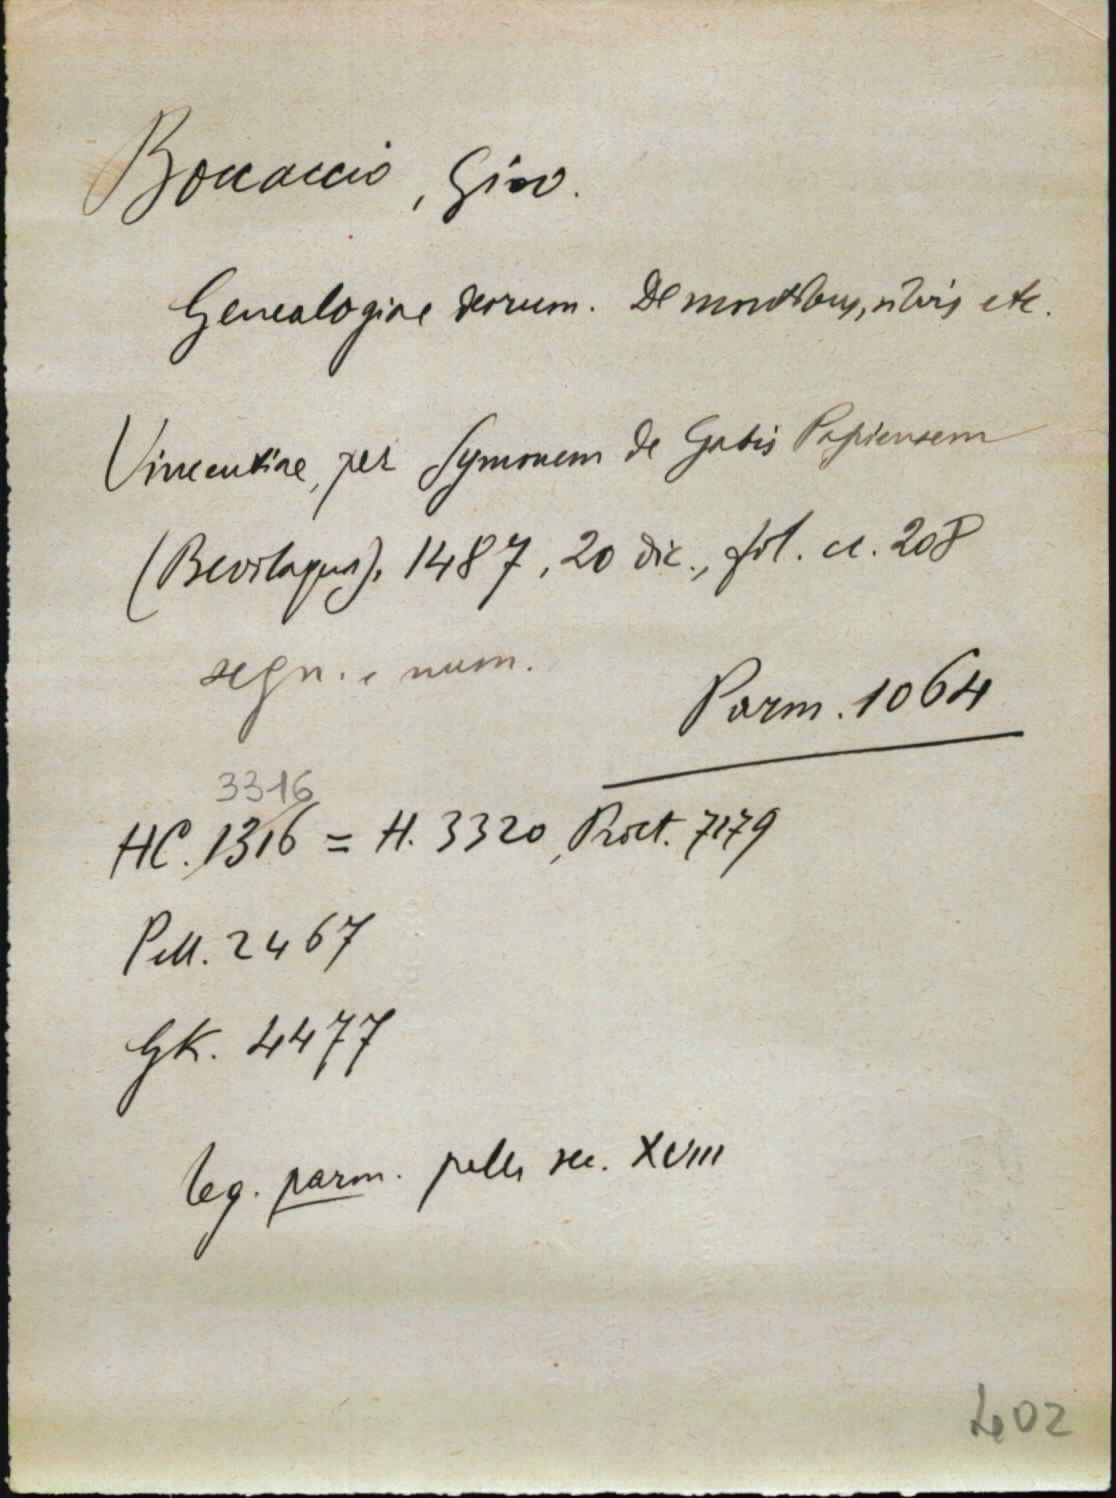 Boccaccio, Giov.
Genealogiae deorum. De montibus, silvis etc.
Vincentiae, per Symonem de Gabis Papiensem
(Bevilaqua), 1487, 20 dic., fol. cc. 208
segn. e num.
Parm. 1064
3316
HC. 1316 = H. 3320, Proct. 7179
Pell. 2467
GK. 4477
leg. parm. pelle sec. XVIII
402